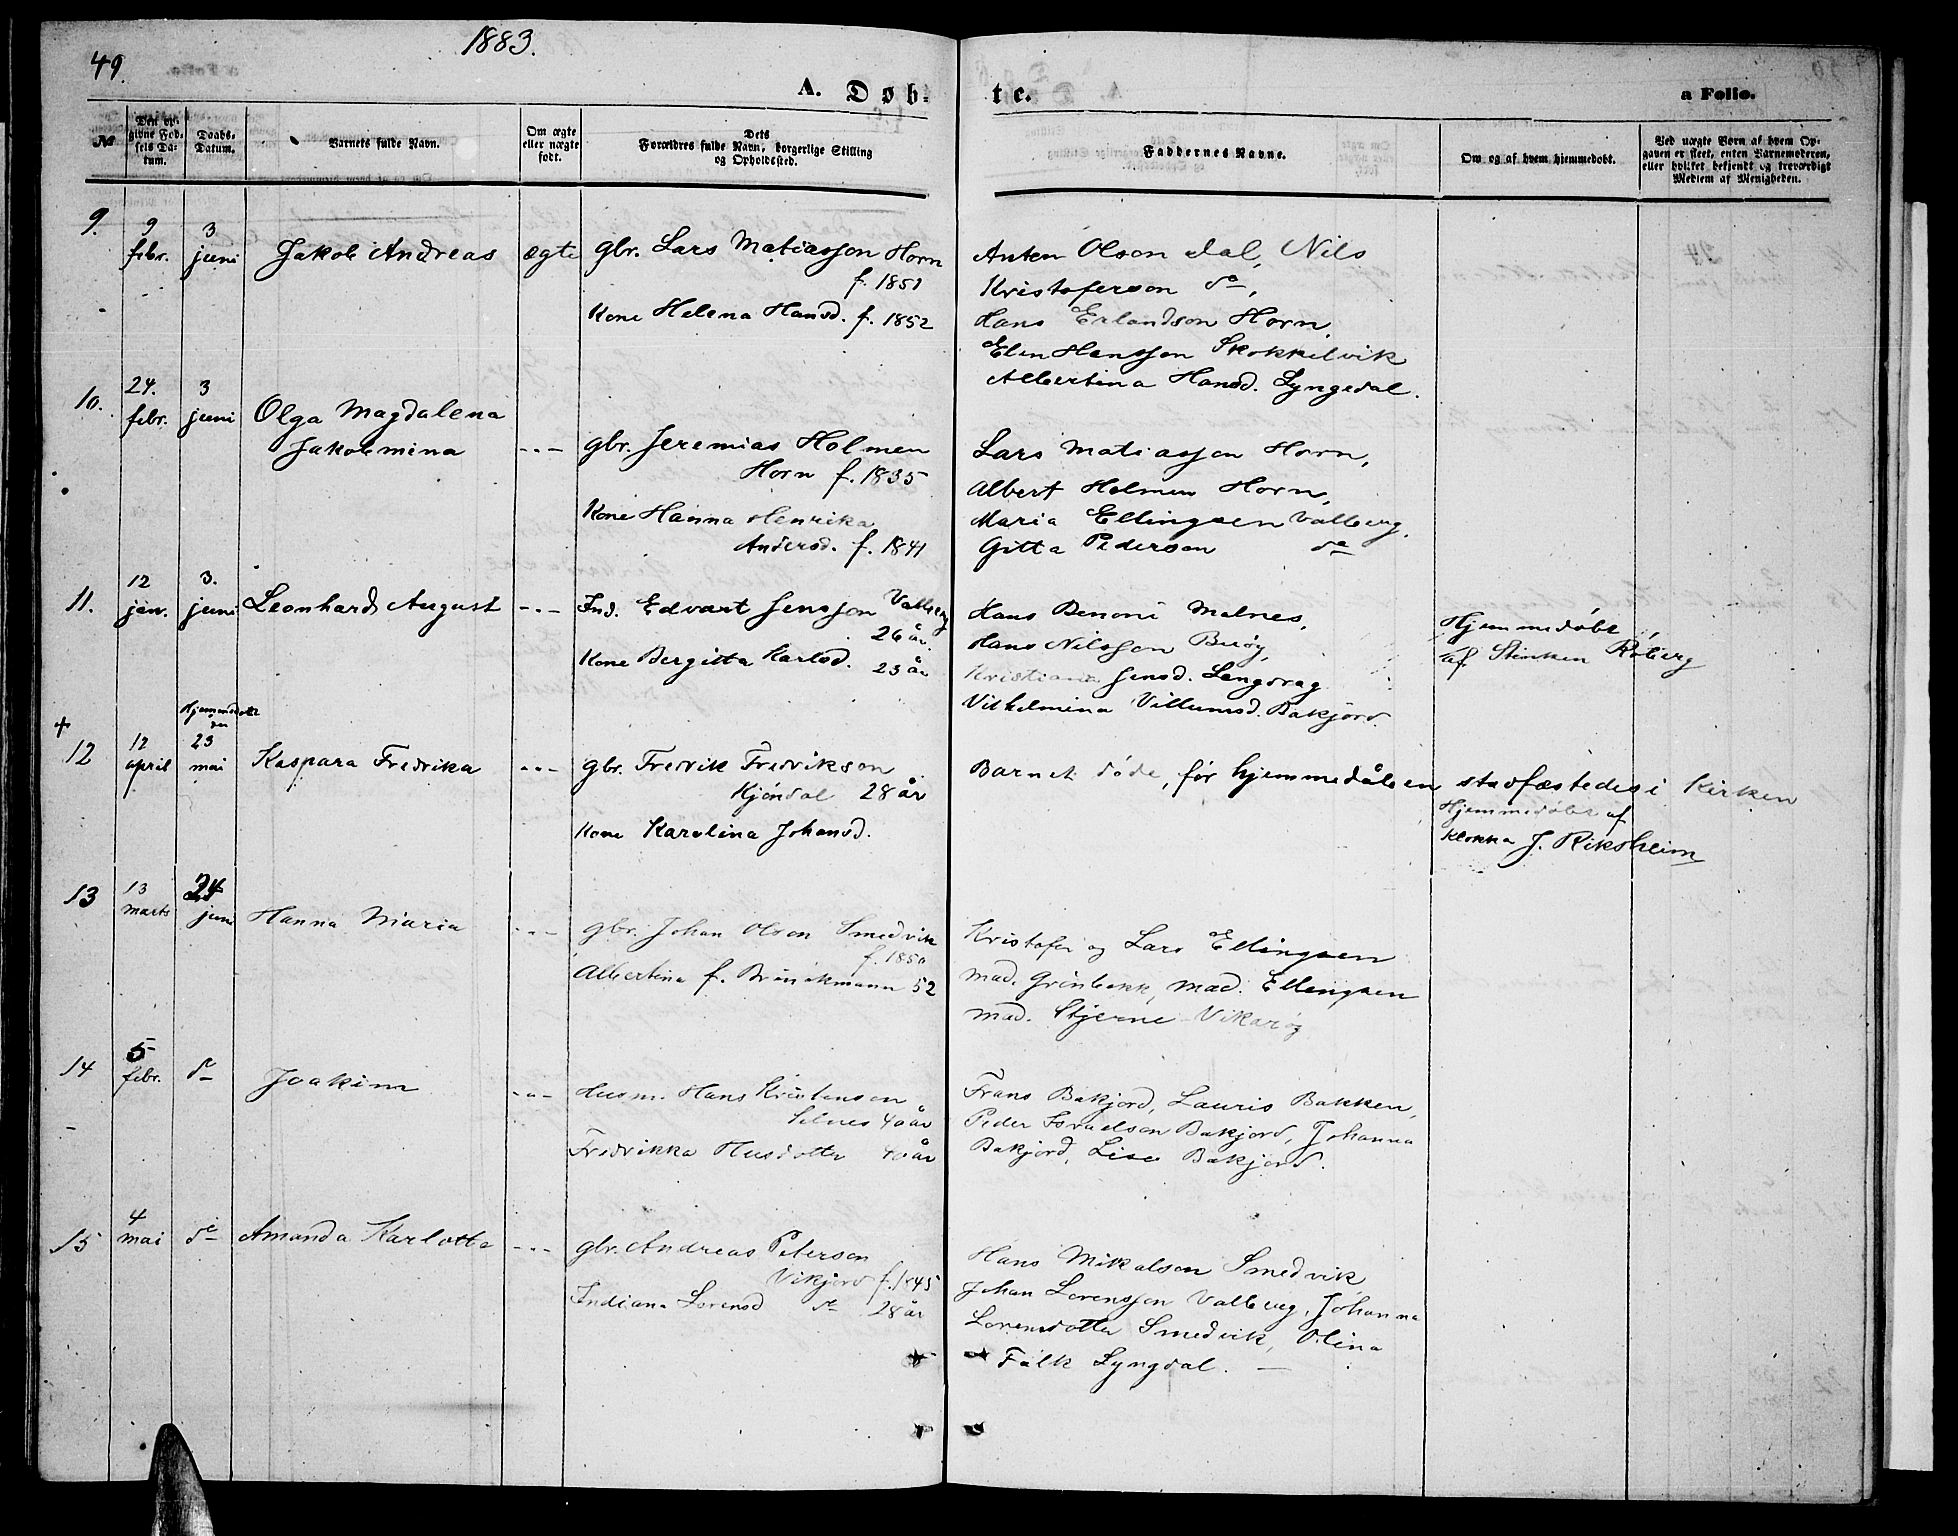 49.
1883.
A. Døb-
te.
a Folio.
№
Den opgivne Fødsels Datum.
Daabs-Datum.
Barnets fulde Navn.
Om ægte eller uægte født.
Dets Forældres fulde Navn, borgerlige Stilling og Opholdssted.
Faddernes Navne.
Om og af hvem hjemmedøbt.
Ved uægte Børn af hvem Opgaven er skeet, enten Barnemoderen, eller hvilket bekjendt og troværdigt Medlem af Menigheden.
9.
9 febr.
3 juni
Jakob Andreas
ægte
gbr. Lars Matiassen Horn
f. 1851
Kone Helena Hansd. f. 1852
Anton Olson Dal, Nils
Kristoferson do,
Hans Erlandson Horn,
Elen Hanssen Skokkelvik
Albertina Hansd. Lyngedal.
10.
24. febr.
3 juni
Olga Magdalena
Jakobmina
-"-
gbr. Jeremias Holmen
Horn f. 1835
Kone Hanna Henrika
Andersd. f. 1841
Lars Matiassen Horn,
Albert Holmen Horn,
Maria Ellingsen Valberg.
Gitta Pederson do
11.
12 jan.
3. juni
Leonhard August
-"-
Ind. Edvart Jenssen Valberg
26 år.
Kone Bergitta Karlsd. 23 år
Hans Benoni Malnes,
Hans Nilssen Buøy,
Kristiana Jensd. Langdrag
Vilhelmina Villumsd. Bakjord.
Hjemmedøbt
af Røberg
+
12
12 april
Hjemmedøbt den
23 mai
Kaspara Fredrika
-"-
gbr. Fredrik Fredrikson
Kjøndal 28 år
Kone Karolina Johansd.
Barnet døde, før hjemmedåben stadfæstedes i Kirken
Hjemmedøbt af
klokka J. Riksheim
13
13 marts
24 juni
Hanna Maria
-"-
gbr. Johan Olson Smedvik
f. 1850
Albertina f. Brinckmann 52
Kristofer og Lars Ellingsen
mad. Grönbekk, mad. Ellingsen
mad. Stjerne Vikarøy
14
5 febr.
do
Joakim
-"-
Husm. Hans Kristenson
Selnes 40 år
Fredrikka Husdotter 40 år
Frans Bakjord, Lauris Bakken,
Peder Israelson Bakjord, Johanna
Bakjord, Lise Bakjord.
15
4 mai
do
Amanda Karlotte
-"-
gbr. Andreas Peterson
Vikjord f. 1845
Indiana Lorensd do 28 år
Hans Mikalson Smedvik,
Johan Lorenssen Valberg, Johanna
Lorensdotter Smedvik, Olina
Falk Lyngdal. —